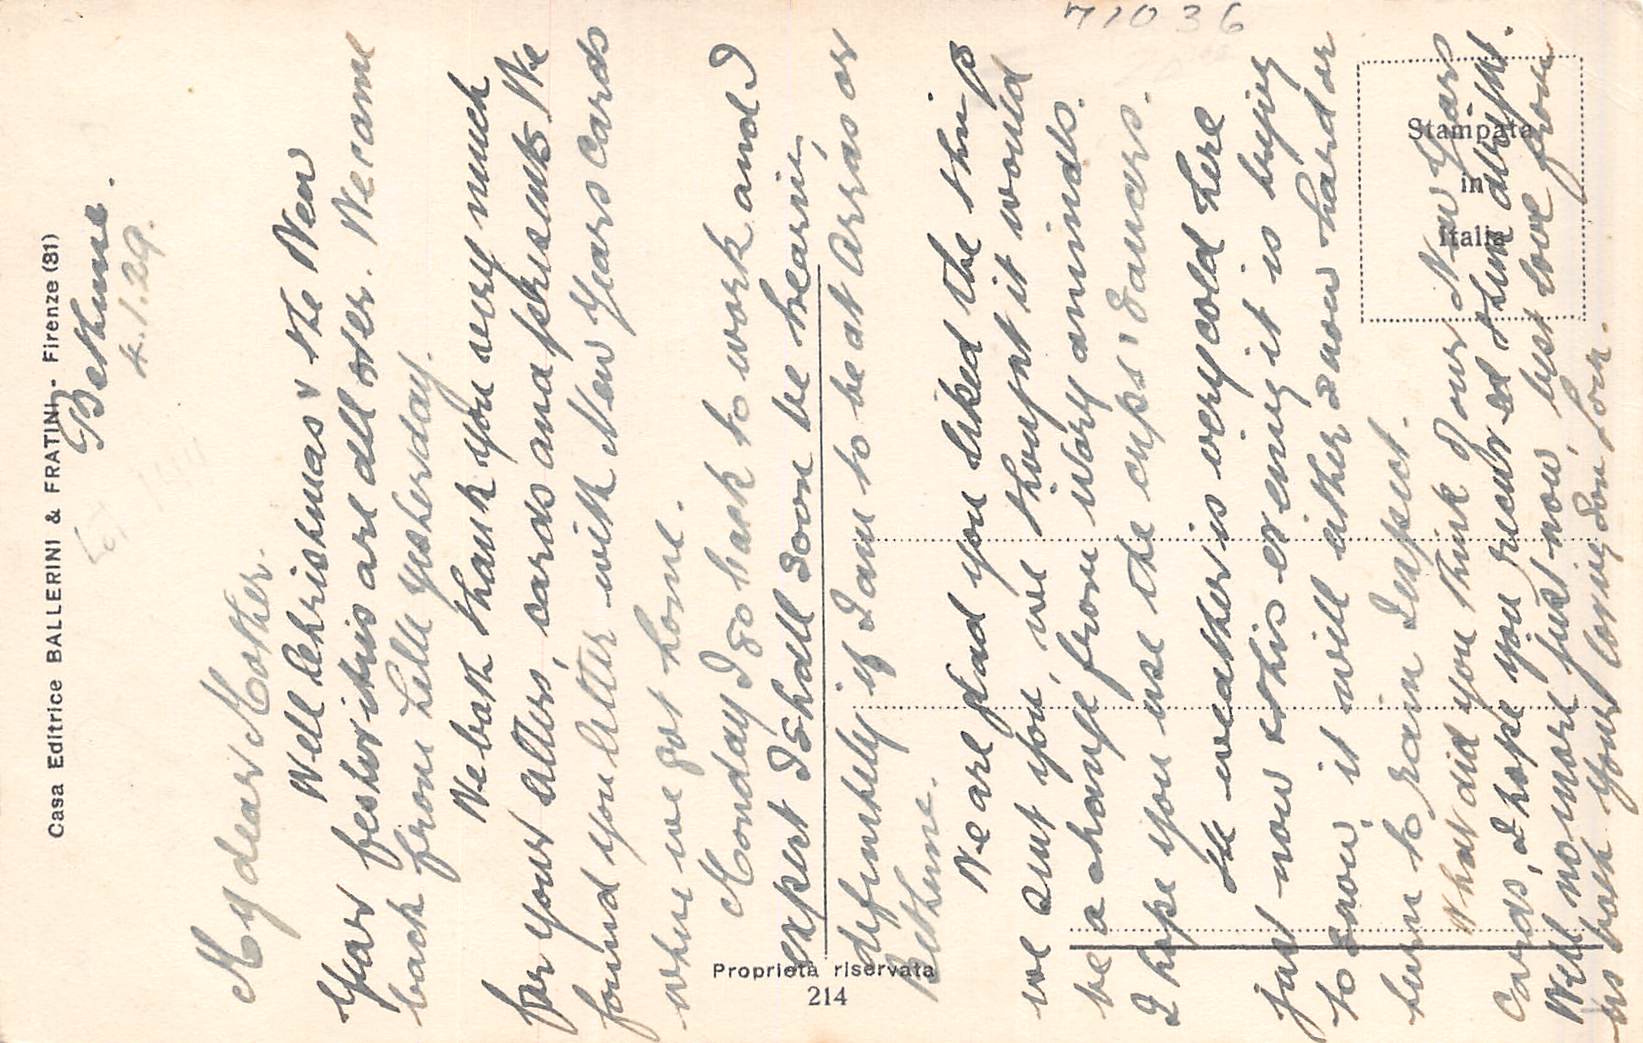 71036
Casa Editrice BALLERINI & FRATINI - Firenze (31)
Bethune.
4.1.29.
My dear Mother.
Well Christmas & the New
Year festivities are all over. We came
back from Lille yesterday.
We both thank you very much
for your letters, cards and presents. We
found your letter with New Years Cards
when we got home.
Monday I go back to work and I
expect I shall soon be hearing
definitely if I am to be at Arras or
Bethune.
We are glad you liked the things
we sent you, we thought it would
be a change from
I hope you use the cups & saucers.
The weather is very cold here
just now & this evening it is trying
to snow, it will either snow harder or
turn to rain I expect.
What did you think of our New Years
Cards, I hope you received them alright.
Well no more just now, best love from
us both your loving Son
Proprietà riservata
214
Stampata
in
Italia